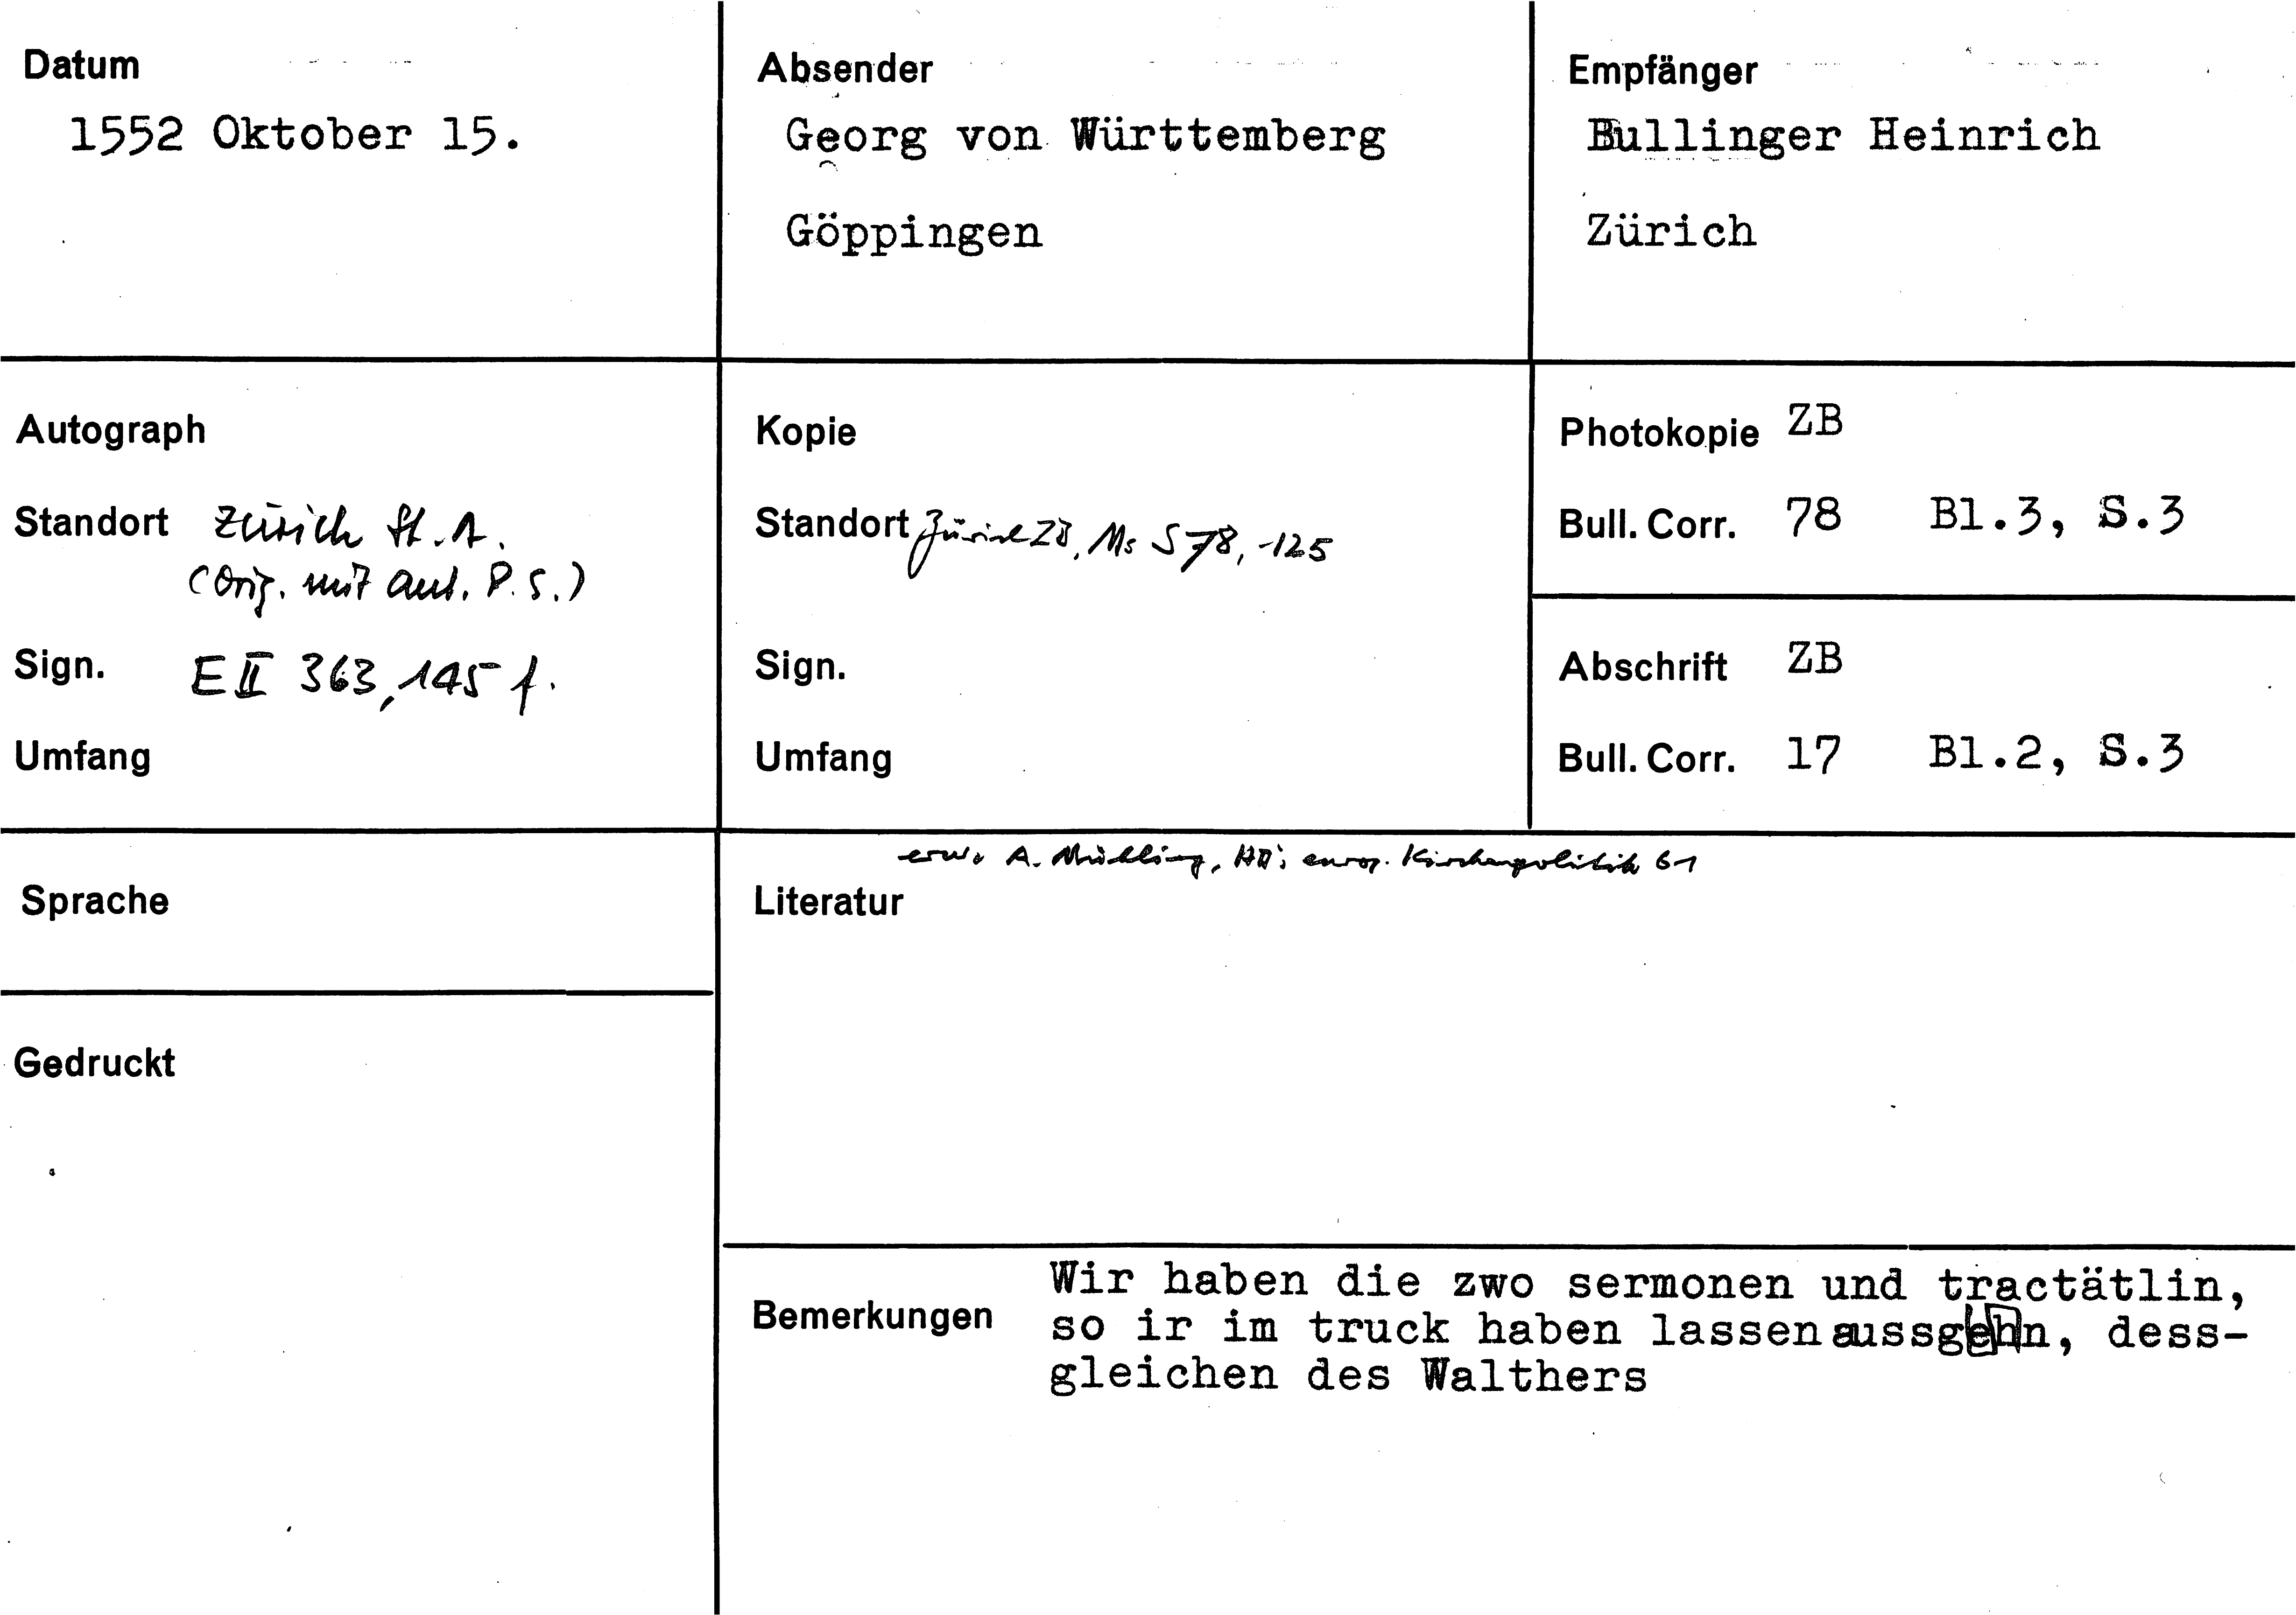 Datum
1552 Oktober 15.
Absender
Georg von Württemberg
Göppingen
Empfänger
Bullinger Heinrich
Zürich
Autograph
Standort Zürich St.A.
(Orig. mit aut. P.S.)
Sign. E II 363, 145 f.
Umfang
Kopie
Standort Zürich ZB, Ms S 78, 125
Sign.
Umfang
Photokopie ZB
Bull. Corr. 78 Bl.3, S.3
Abschrift ZB
Bull. Corr. 17 Bl.2, S.3
Sprache
Gedruckt
erw. A. Mühling, HB's europ. Kirchenpolitik 61
Literatur
Bemerkungen
Wir haben die zwo sermonen und tractätlin,
so ir im truck haben lassen aussgehn, dess-
gleichen des Walthers